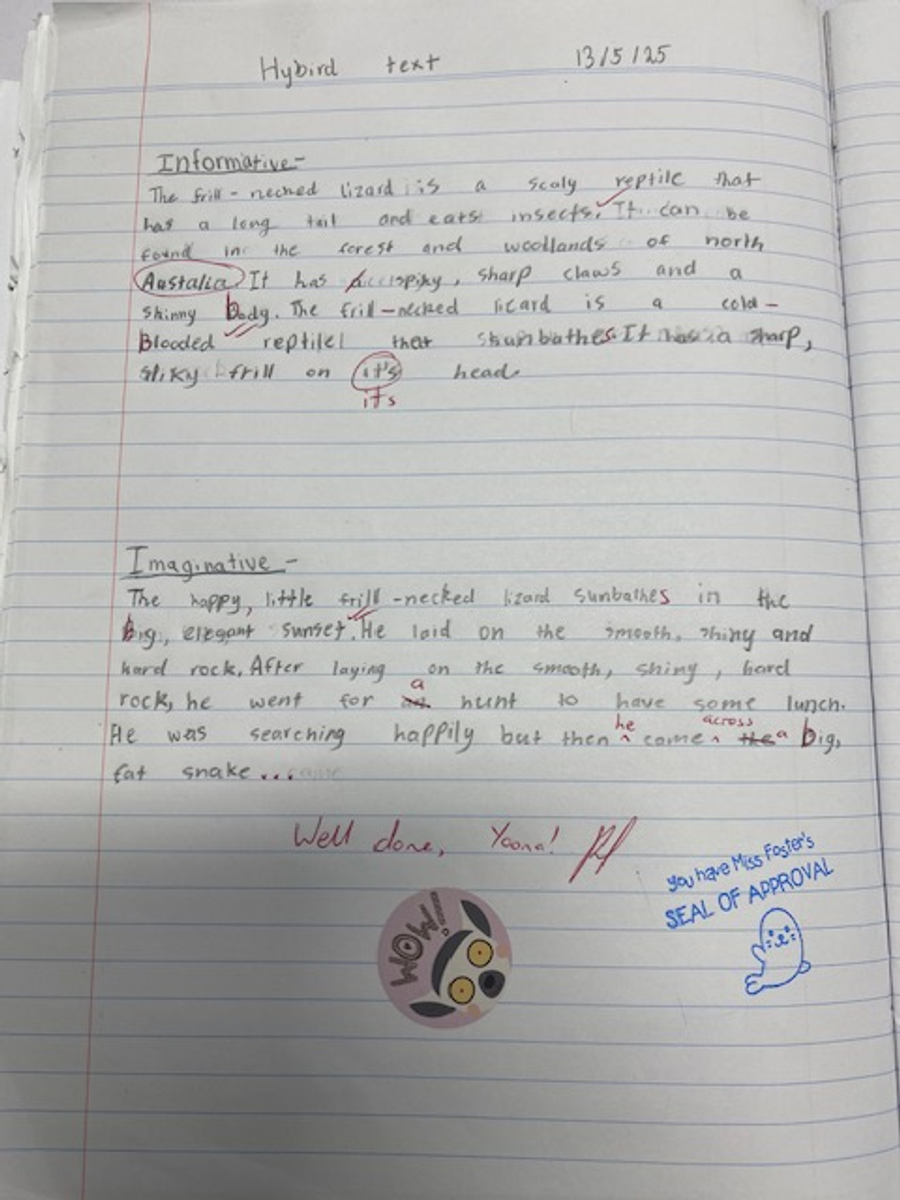 Hybird text 13/5/25
Informative-
The frill-necked lizard is a scaly reptile that
has a long tail and eats insects. It can be
found in the forest and woodlands of north
Austalia It has spiky, sharp claws and a
skinny body. The frill-necked lizard is a cold-
Blooded reptile that sunbathes. It has a sharp,
frill on it's head.
it's
Imaginative-
The happy, little frill-necked lizard sunbathes in the
big, elegant sunset. He laid on the smooth, shiny and
hard rock. After laying on the smooth, shiny, hard
rock, he went for a hunt to have some lunch.
He was searching happily but then he came across the a big,
fat snake...
Well done, Yoona!
you have Miss Foster's
SEAL OF APPROVAL
WOW!